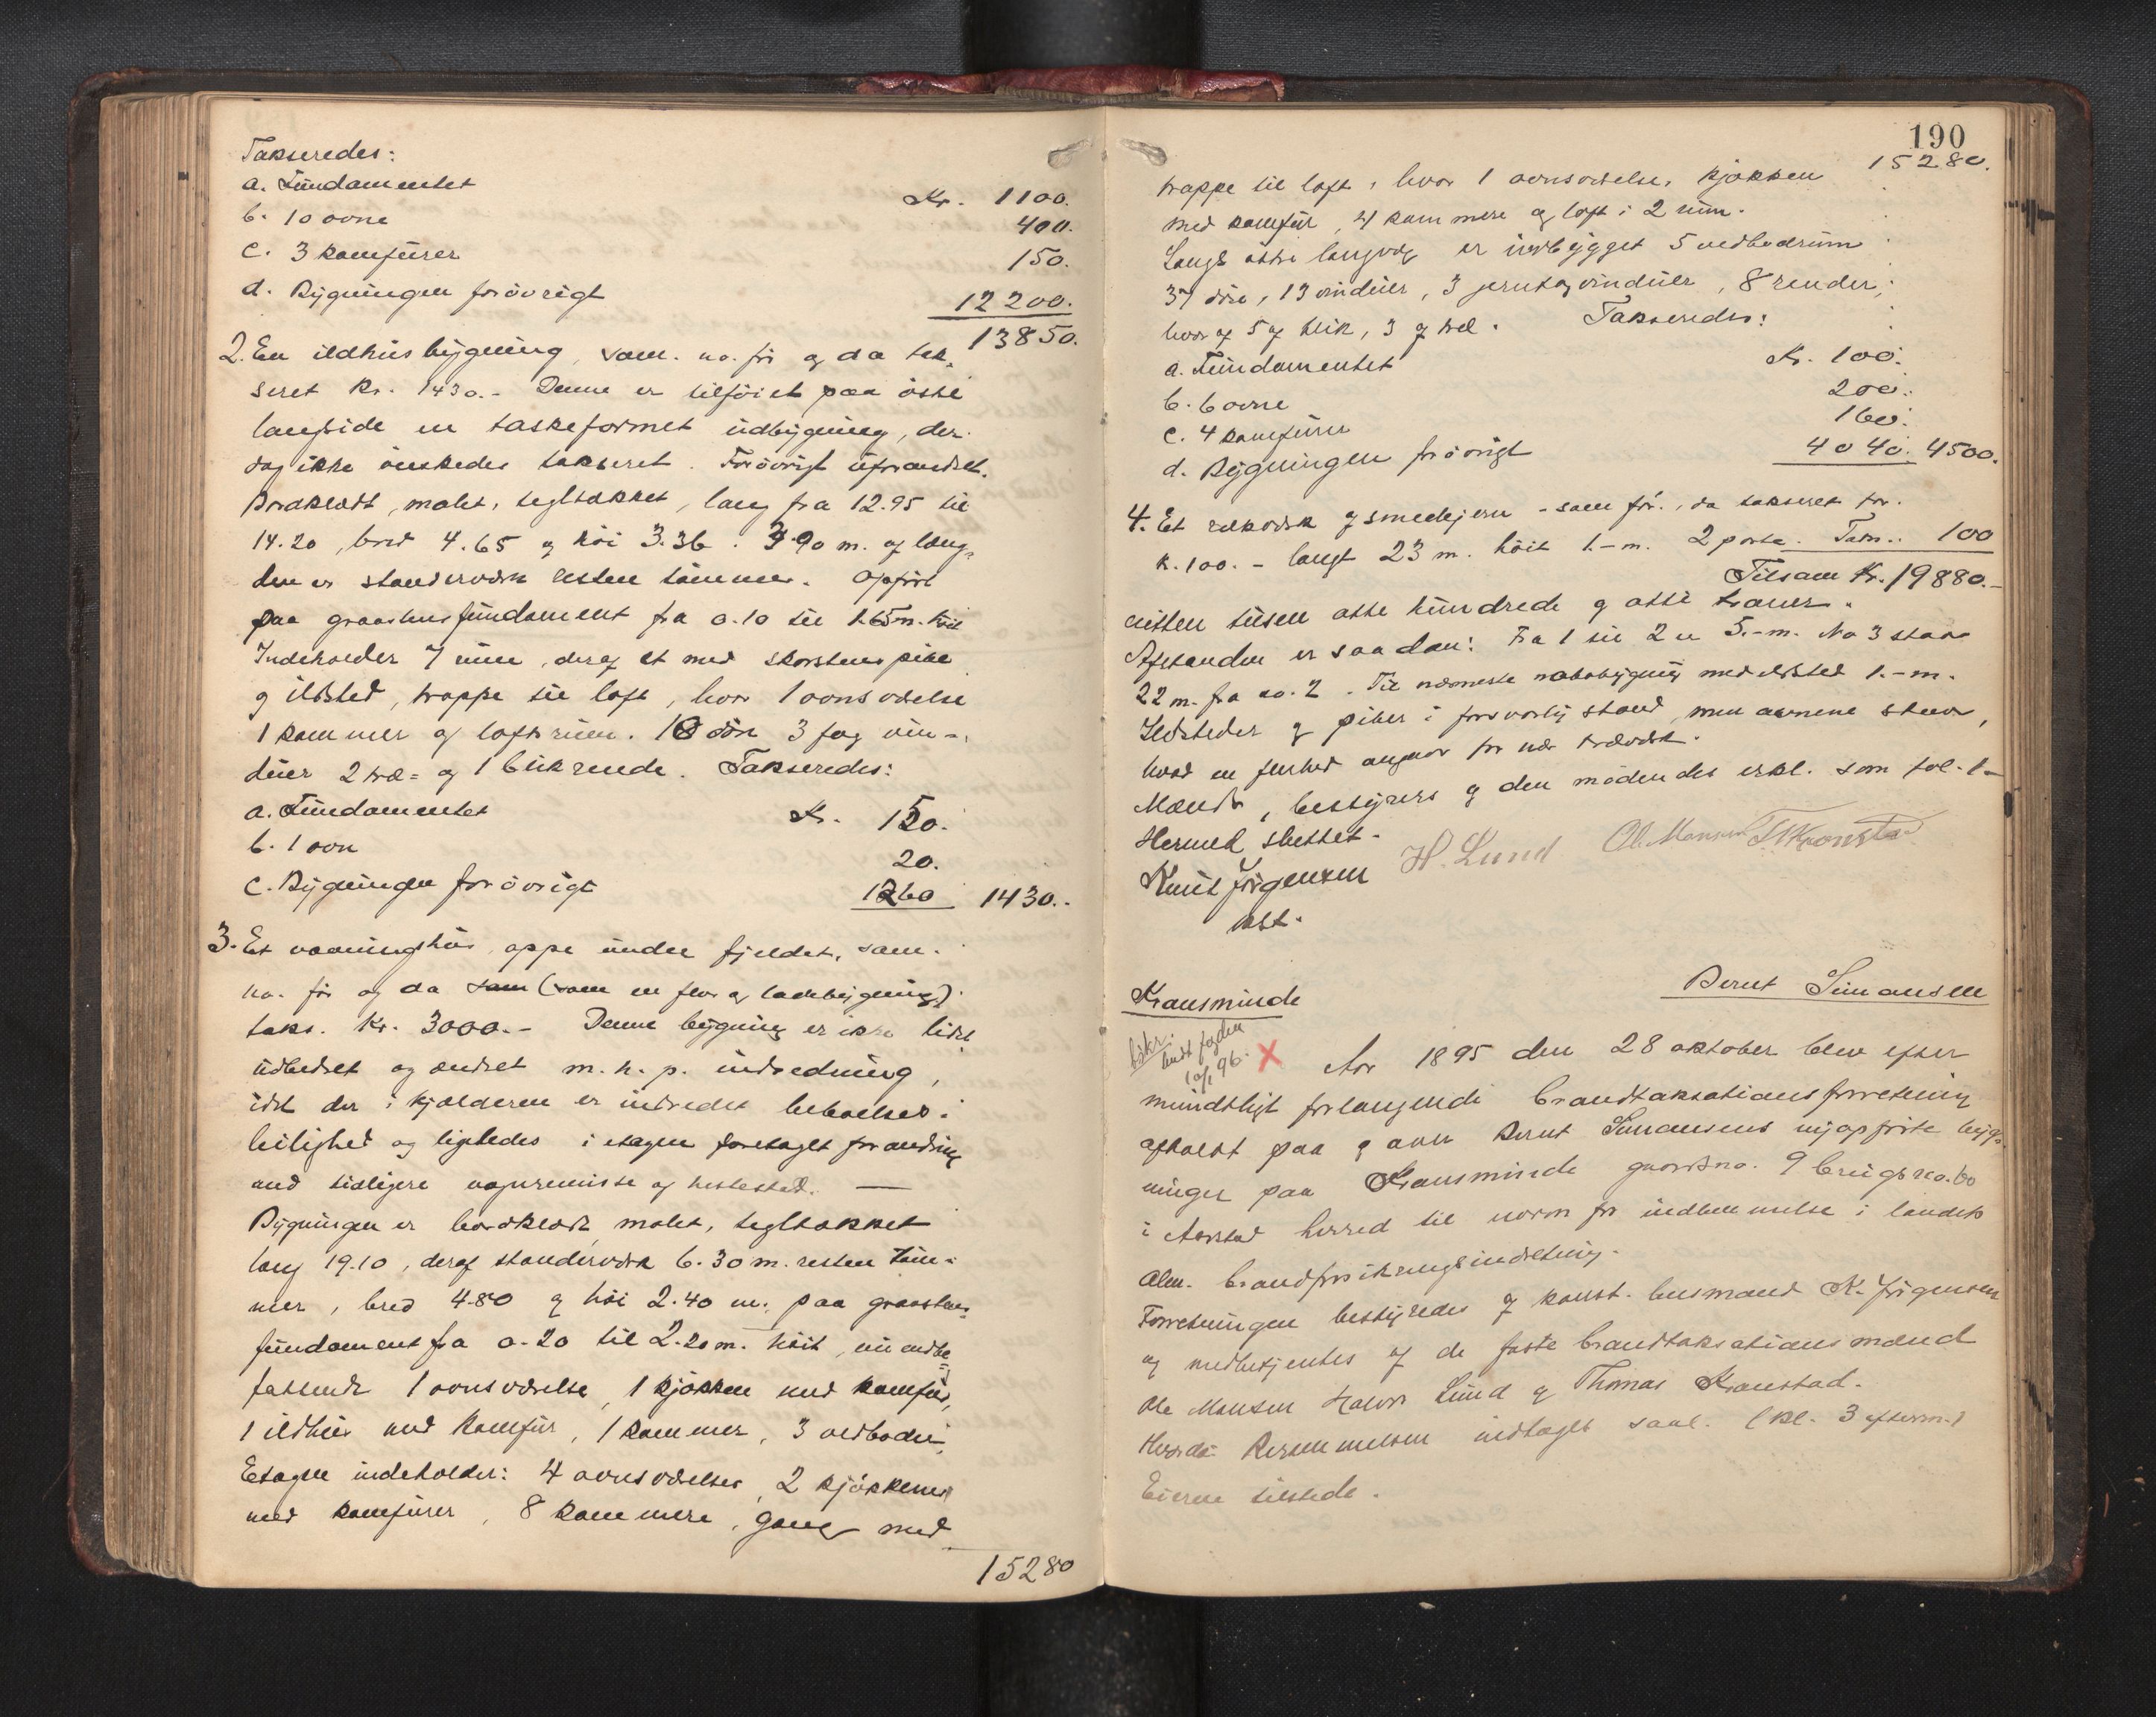 Takseredes:
a. Fundamentet Kr. 1100.
b. 10 ovne 400.
c. 3 komfurer 150.
d. Bygningen forövrigt 12200.
13850.
2. En ildhusbygning, sam. no. för og da tak-
seret kr. 1430.- Denne er tilföiet paa östre
langside en taskeformet udbygning, der
dog ikke önskedes takseret. Forövrigt uforandret.
Bordklædt, malet, tegltækket, lang fra 12.95 til
14.20, bred 4.65 og höi 3.36. 3.90 m. af læng-
den er standerværk resten tömmer. Opfört
paa graastensfundament fra 0.10 til 1.65 m. höit
Indeholder 7 rum, deraf et med skorstenspibe
og ildsted, trappe til loft, hvor 1 ovnsværelse
1 kammer og loftsrum. 18 döre 3 fag vin-
duer 2 træ- og 1 blikrende. Takseredes:
a. Fundamentet Kr. 150.
b. 1 ovn 20.
c. Bygningen forövrigt 1260 1430.-
3. Et vaaningshus oppe under fjeldet, sam.
no. för og da som (som en flor og ladebygning)
taks. Kr. 3000.- Denne bygning er ikke lidet
udbedret og ændret m. h. p. indredning,
idet der i kjælderen er indredet beboelses-
leilighed og ligeledes i etagen foretaget forandring
med tidligere vognremisse og hestestald. —
Bygningen er bordklædt, malet, tegltækket
lang 19.10, deraf standerværk 6.30 m. resten töm-
mer, bred 4.80 og höi 2.40 m. paa graastens-
fundament fra 0.20 til 2.20 m. höit, nu indbe-
fattende 1 ovnsværelse, 1 kjökken med komfur,
1 ildhus med komfur, 1 kammer, 3 vedboder.
Etagen indeholder: 4 ovnsværelser, 2 kjökkener
med komfurer, 8 kammere, gang med
15280
190
trappe til loft, hvor 1 ovnsværelse, kjökken 15280.
med komfur, 4 kammere og loft i 2 rum.
Langs östre langvæg er indbygget 5 vedbodrum
37 döre, 13 vinduer, 3 jerntagvinduer, 8 render,
hvoraf 5 af blik, 3 af træ. Takseredes:
a. Fundamentet Kr. 100.
b. 6 ovne 200.
c. 4 komfurer 160.
d. Bygningen forövrigt 4040. 4500.
4. Et rækværk af smedejern - som för, da takseret for
k. 100.- langt 23 m. höit 1.- m. 2 porte. Taks.: 100
Tilsam Kr. 19880.-
nitten tusen otte hundrede og otti kroner.
Afstanden er saadan: Fra 1 til 2 er 5.- m. No 3 staar
22 m. fra no. 2. Til nærmeste nabobygning med ildsted 1.- m.
Ildsteder og piber i forsvarlig stand, men ovnene staar,
hvad en flerhed angaar for nær træværk.
Mændr, bestyrers og den mödendes erkl. som fol. 1-
Hermed sluttet.
Knut Jörgensen H. Lund Ol. Monsen T Kronstad
kst.
Kransminde Bernt Simonsen
budt fogden
96. X Aar 1895 den 28 oktober blev efter
mundtligt forlangende brandtaksationsforretning
afholdt paa og over Bernt Simonsens nyopförte byg-
ninger paa Kransminde gaardsno. 9 brugsno. 60
i Aarstad herred til norm for indlemmelse i landets
alm. brandforsikringsindretning.
Forretningen bestyredes af konst. lensmand K. Jörgensen
og medbetjentes af de faste brandtaksationsmænd
Ole Monsen Halvor Lund og Thomas Kronstad.
Hværds Bestemmelsen indtages saal. (kl. 3 efterm.)
Eieren tilstede.